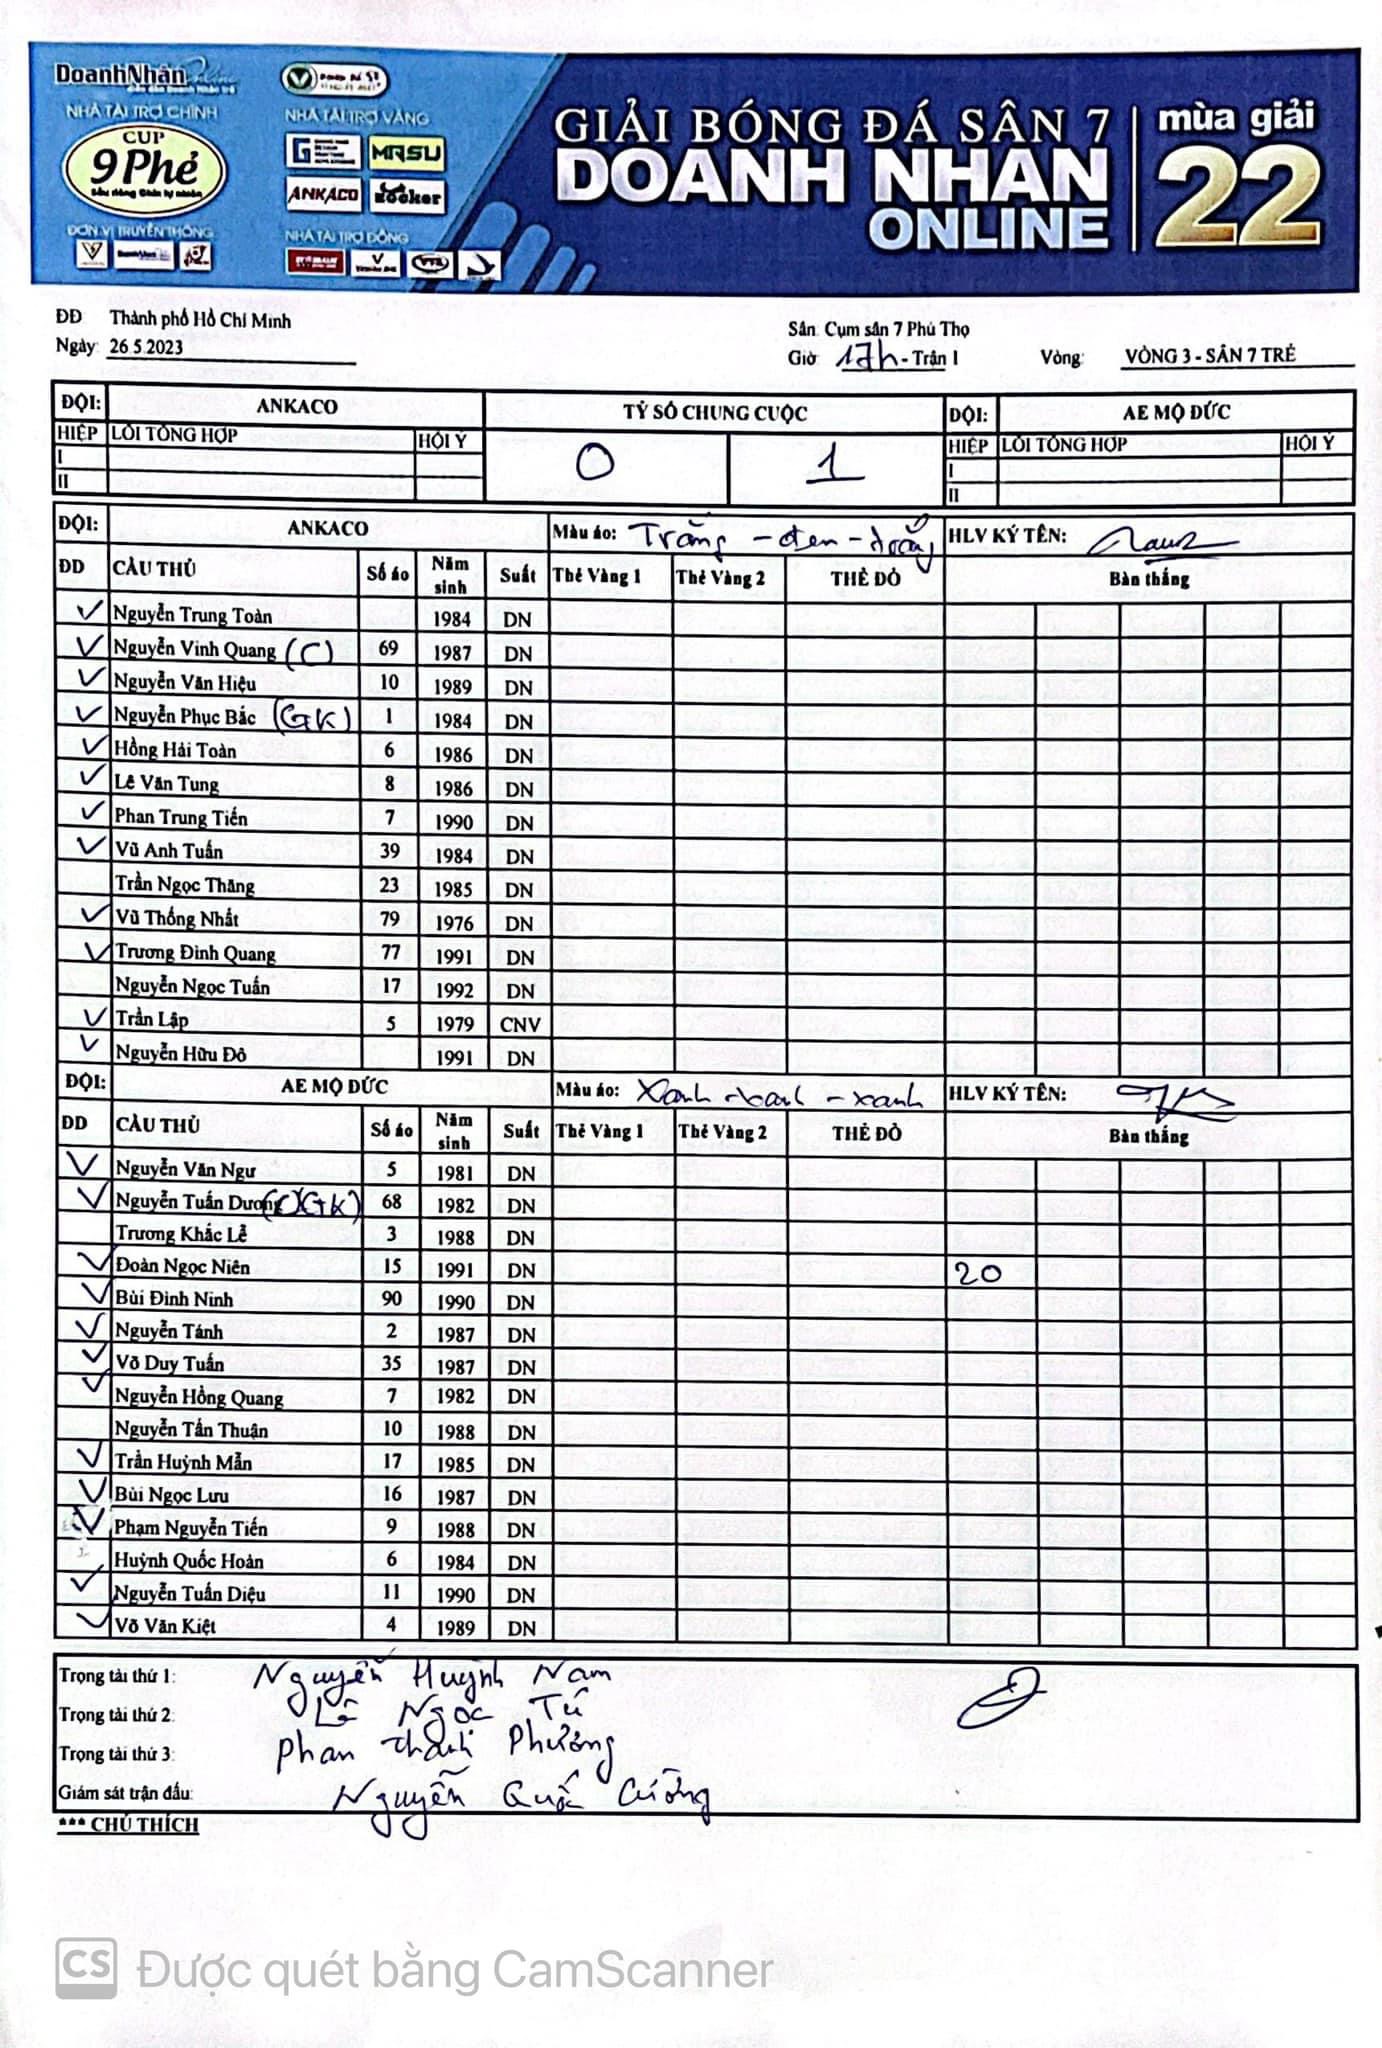 DoanhNhân Online
NHÀ TÀI TRỢ CHÍNH
CUP
9 Phẻ
Sầu riêng Chín tự nhiên
ĐƠN VỊ TRUYỀN THÔNG
NHÀ TÀI TRỢ VÀNG
MRSU
ANKACO
Zocker
NHÀ TÀI TRỢ ĐỒNG
GIẢI BÓNG ĐÁ SÂN 7
DOANH NHÂN
ONLINE
mùa giải
22
ĐĐ Thành phố Hồ Chí Minh
Ngày: 26 5.2023
Sân: Cụm sân 7 Phú Thọ
Giờ: 17h - Trận 1 Vòng: VÒNG 3 - SÂN 7 TRẺ
ĐỘI: ANKACO TỶ SỐ CHUNG CUỘC ĐỘI: AE MỘ ĐỨC
HIỆP LỖI TỔNG HỢP HỘI Ý 0 1 HIỆP LỖI TỔNG HỢP HỘI Ý
I I
II II
ĐỘI: ANKACO Màu áo: Trắng - đen - trắng HLV KÝ TÊN:
ĐD CẦU THỦ Số áo Năm sinh Suất Thẻ Vàng 1 Thẻ Vàng 2 THẺ ĐỎ Bàn thắng
Nguyễn Trung Toàn 1984 DN
Nguyễn Vinh Quang (C) 69 1987 DN
Nguyễn Văn Hiệu 10 1989 DN
Nguyễn Phục Bắc (GK) 1 1984 DN
Hồng Hải Toàn 6 1986 DN
Lê Văn Tung 8 1986 DN
Phan Trung Tiến 7 1990 DN
Vũ Anh Tuấn 39 1984 DN
Trần Ngọc Thăng 23 1985 DN
Vũ Thống Nhất 79 1976 DN
Trương Đình Quang 77 1991 DN
Nguyễn Ngọc Tuấn 17 1992 DN
Trần Lập 5 1979 CNV
Nguyễn Hữu Đô 1991 DN
ĐỘI: AE MỘ ĐỨC Màu áo: Xanh - xanh - xanh HLV KÝ TÊN:
ĐD CẦU THỦ Số áo Năm sinh Suất Thẻ Vàng 1 Thẻ Vàng 2 THẺ ĐỎ Bàn thắng
Nguyễn Văn Ngư 5 1981 DN
Nguyễn Tuấn Dương (C) (GK) 68 1982 DN
Trương Khắc Lễ 3 1988 DN
Đoàn Ngọc Niên 15 1991 DN 20
Bùi Đình Ninh 90 1990 DN
Nguyễn Tánh 2 1987 DN
Võ Duy Tuấn 35 1987 DN
Nguyễn Hồng Quang 7 1982 DN
Nguyễn Tấn Thuận 10 1988 DN
Trần Huỳnh Mẫn 17 1985 DN
Bùi Ngọc Lưu 16 1987 DN
Phạm Nguyễn Tiến 9 1988 DN
Huỳnh Quốc Hoàn 6 1984 DN
Nguyễn Tuấn Diệu 11 1990 DN
Võ Văn Kiệt 4 1989 DN
Trọng tài thứ 1: Nguyễn Huỳnh Nam
Trọng tài thứ 2: Lê Ngọc Tú
Trọng tài thứ 3: Phan Thanh Phương
Giám sát trận đấu: Nguyễn Quốc Cường
*** CHÚ THÍCH
CS Được quét bằng CamScanner